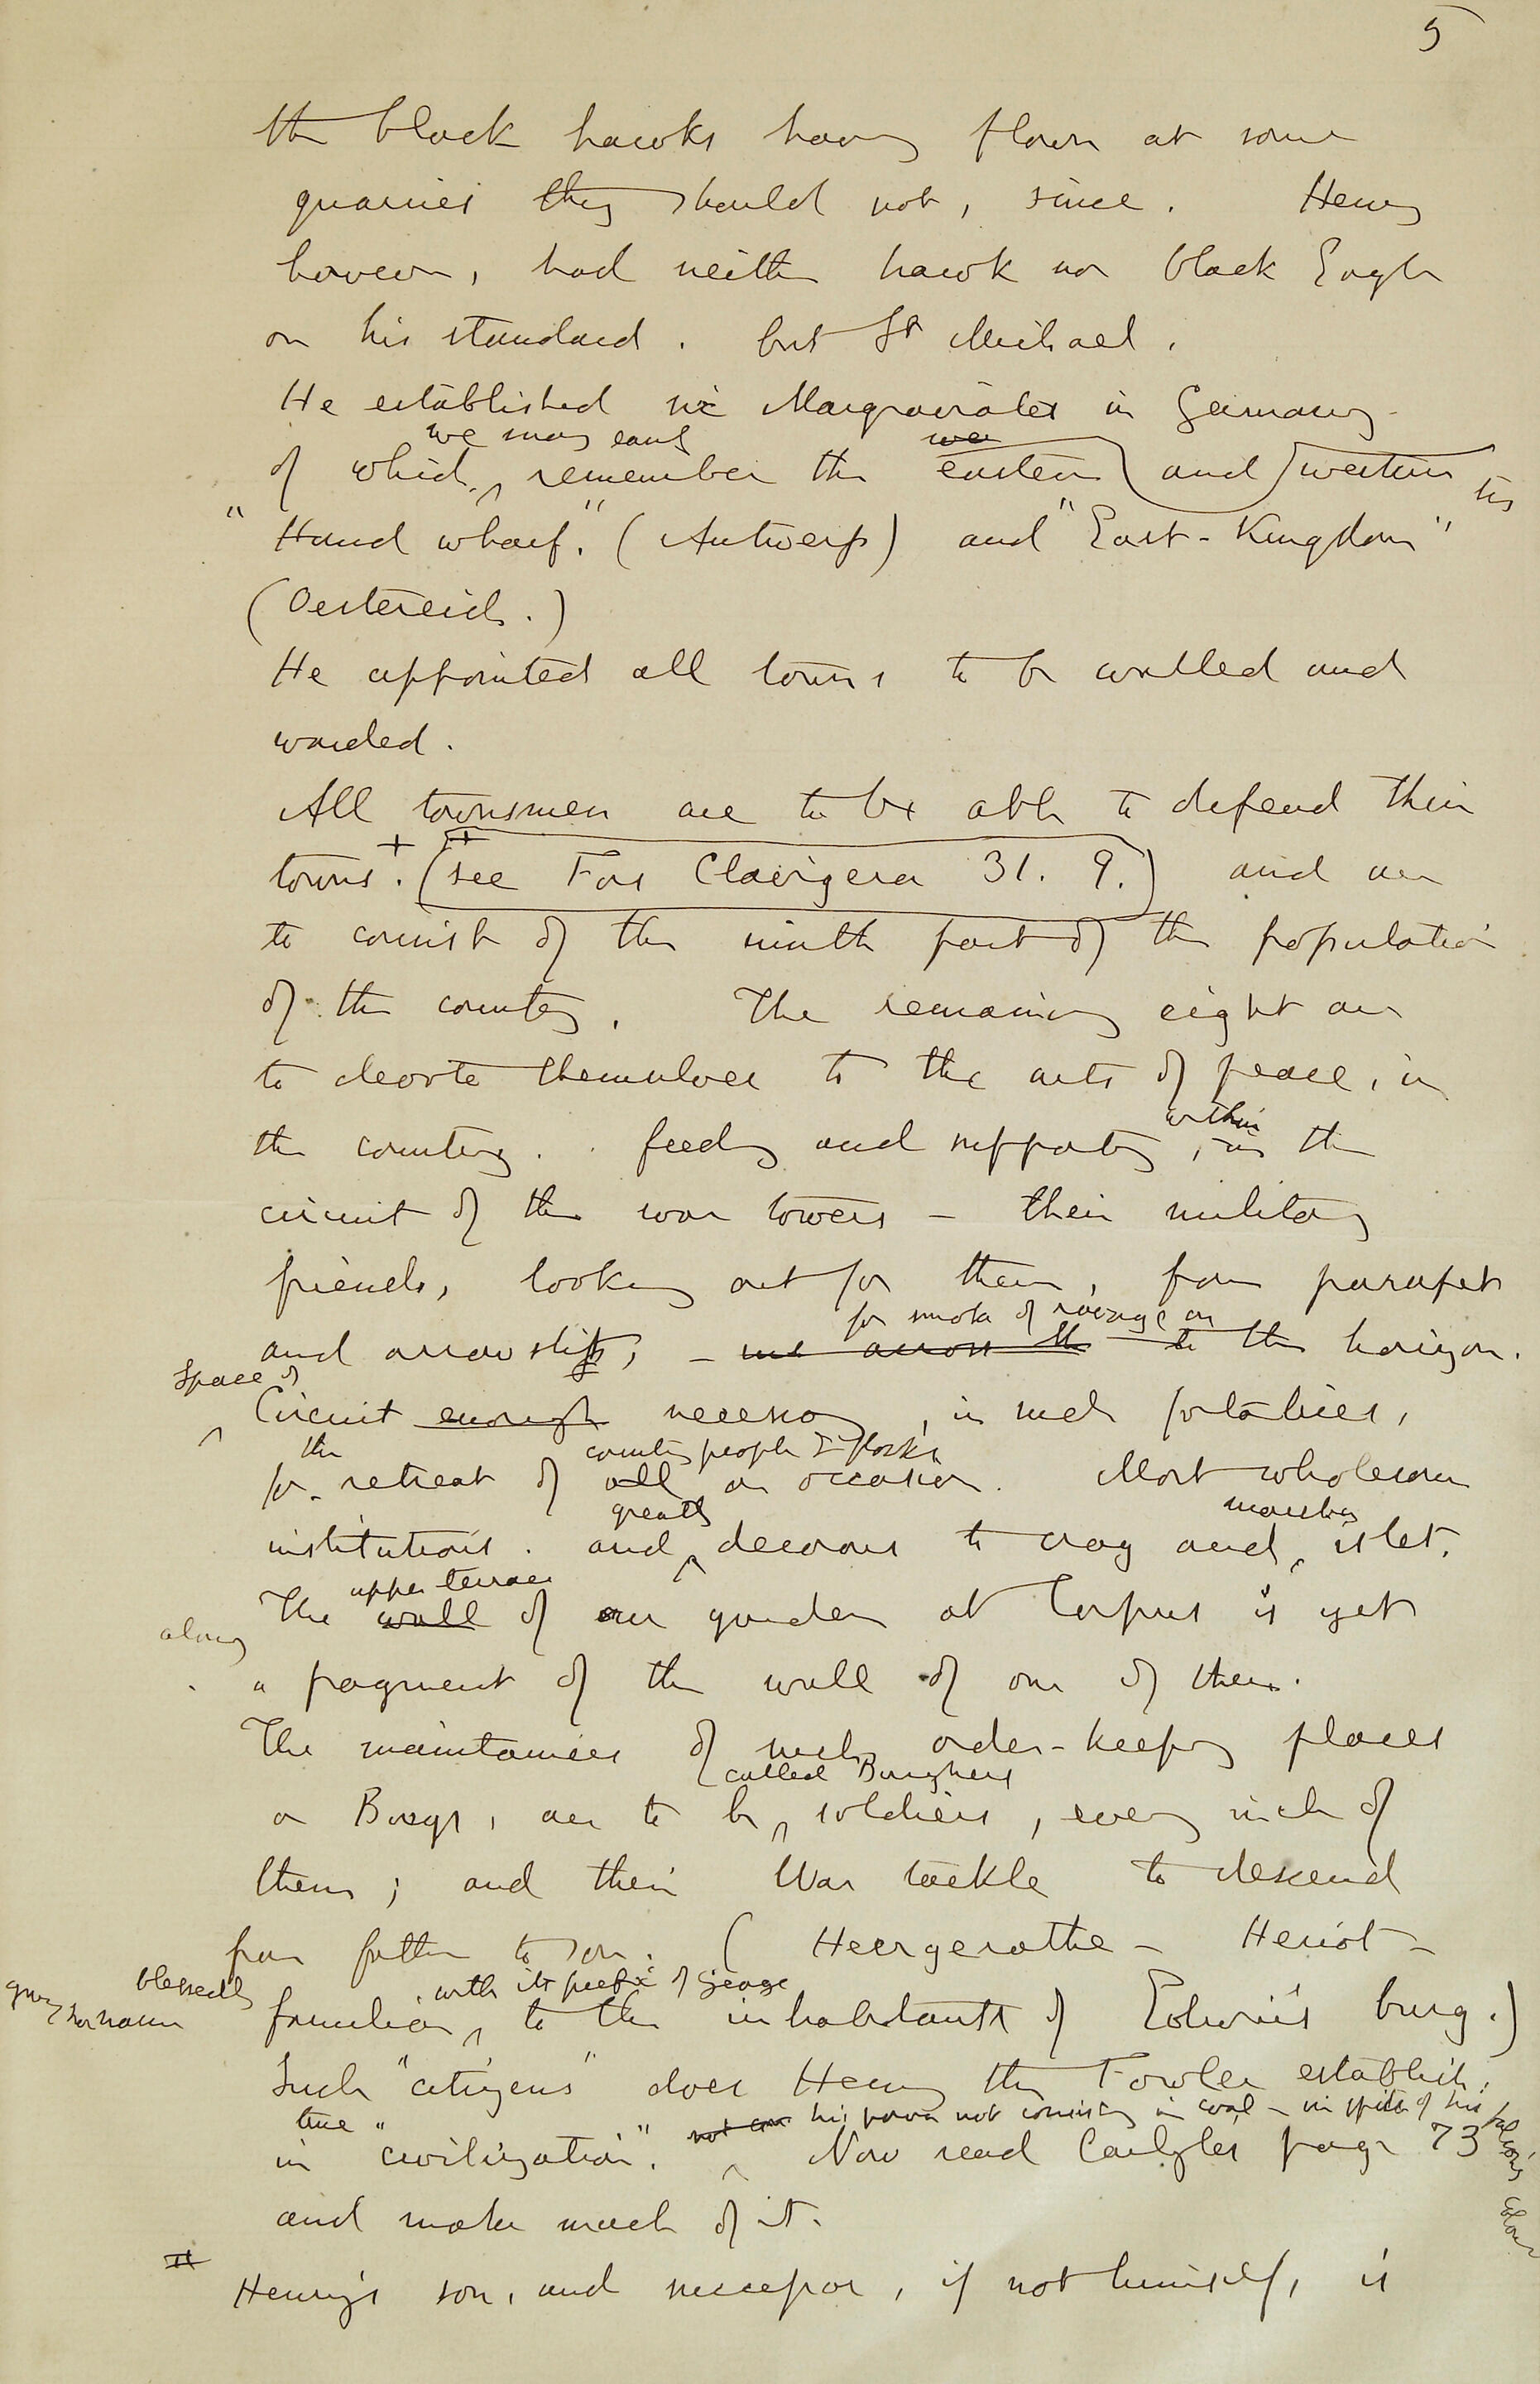 5
the black hawks having flown at some
quarries they should not, since. Henry
however, had neither hawk nor black Eagle
on his standard. but St Michael.
He established six Margraviates in Germany
we may easily wes
of which, remember the eastern and western its
"Hand wharf." (Antwerp) and "East-Kingdom"
(Oestereich.)
He appointed all towns to be walled and
warded.
All townsmen are to be able to defend their
towns. + (see Fors Clavigera 31. 9.) and are
to consist of the ninth part of the population
of the country. The remaining eight are
to devote themselves to the arts of peace, in
within
the country. feeding and supporting, in the
circuit of the war towers - their military
friends, looking out for them, from parapet
for smoke of ravage on
and arrowslit, - and across the to the horizon.
Space of
Circuit enough necessary, in such fortalices,
the country people & flocks
for retreat of all on occasion. Most wholesome
greatly marshy
institutions. and decorous to crag and islet.
upper terrace
The wall of our garden at Corpus is yet
along
a fragment of the wall of one of them.
The maintainers of such order-keeping places
called Burghers
or Burgs, are to be soldiers, every inch of
them; and their War tackle to descend
from father to son. (Heergerathe - Heriot -
blessedly with its prefix of George
surname familiar to the inhabitants of Edwin's burg.)
Such "citizens" does Henry the Fowler establish,
true his power not consisting in coal - in spite of his
in "civilization". Now read Carlyles page 73
and make much of it.
Henry's son, and successor, if not himself, is